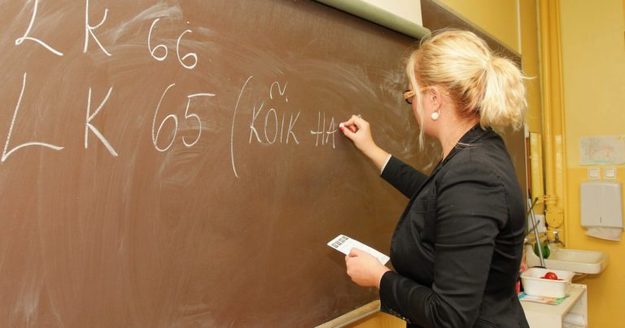 Lk 66
Lk 65 (KÕIK HA